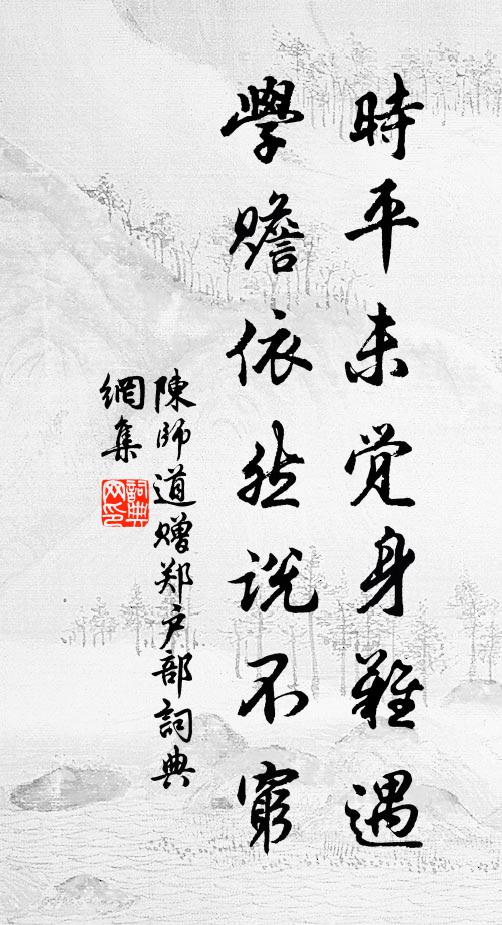 時平未觉身難遇
學贍依然说不窮
陳師道赠郑户部詞典
網集
詞典網印